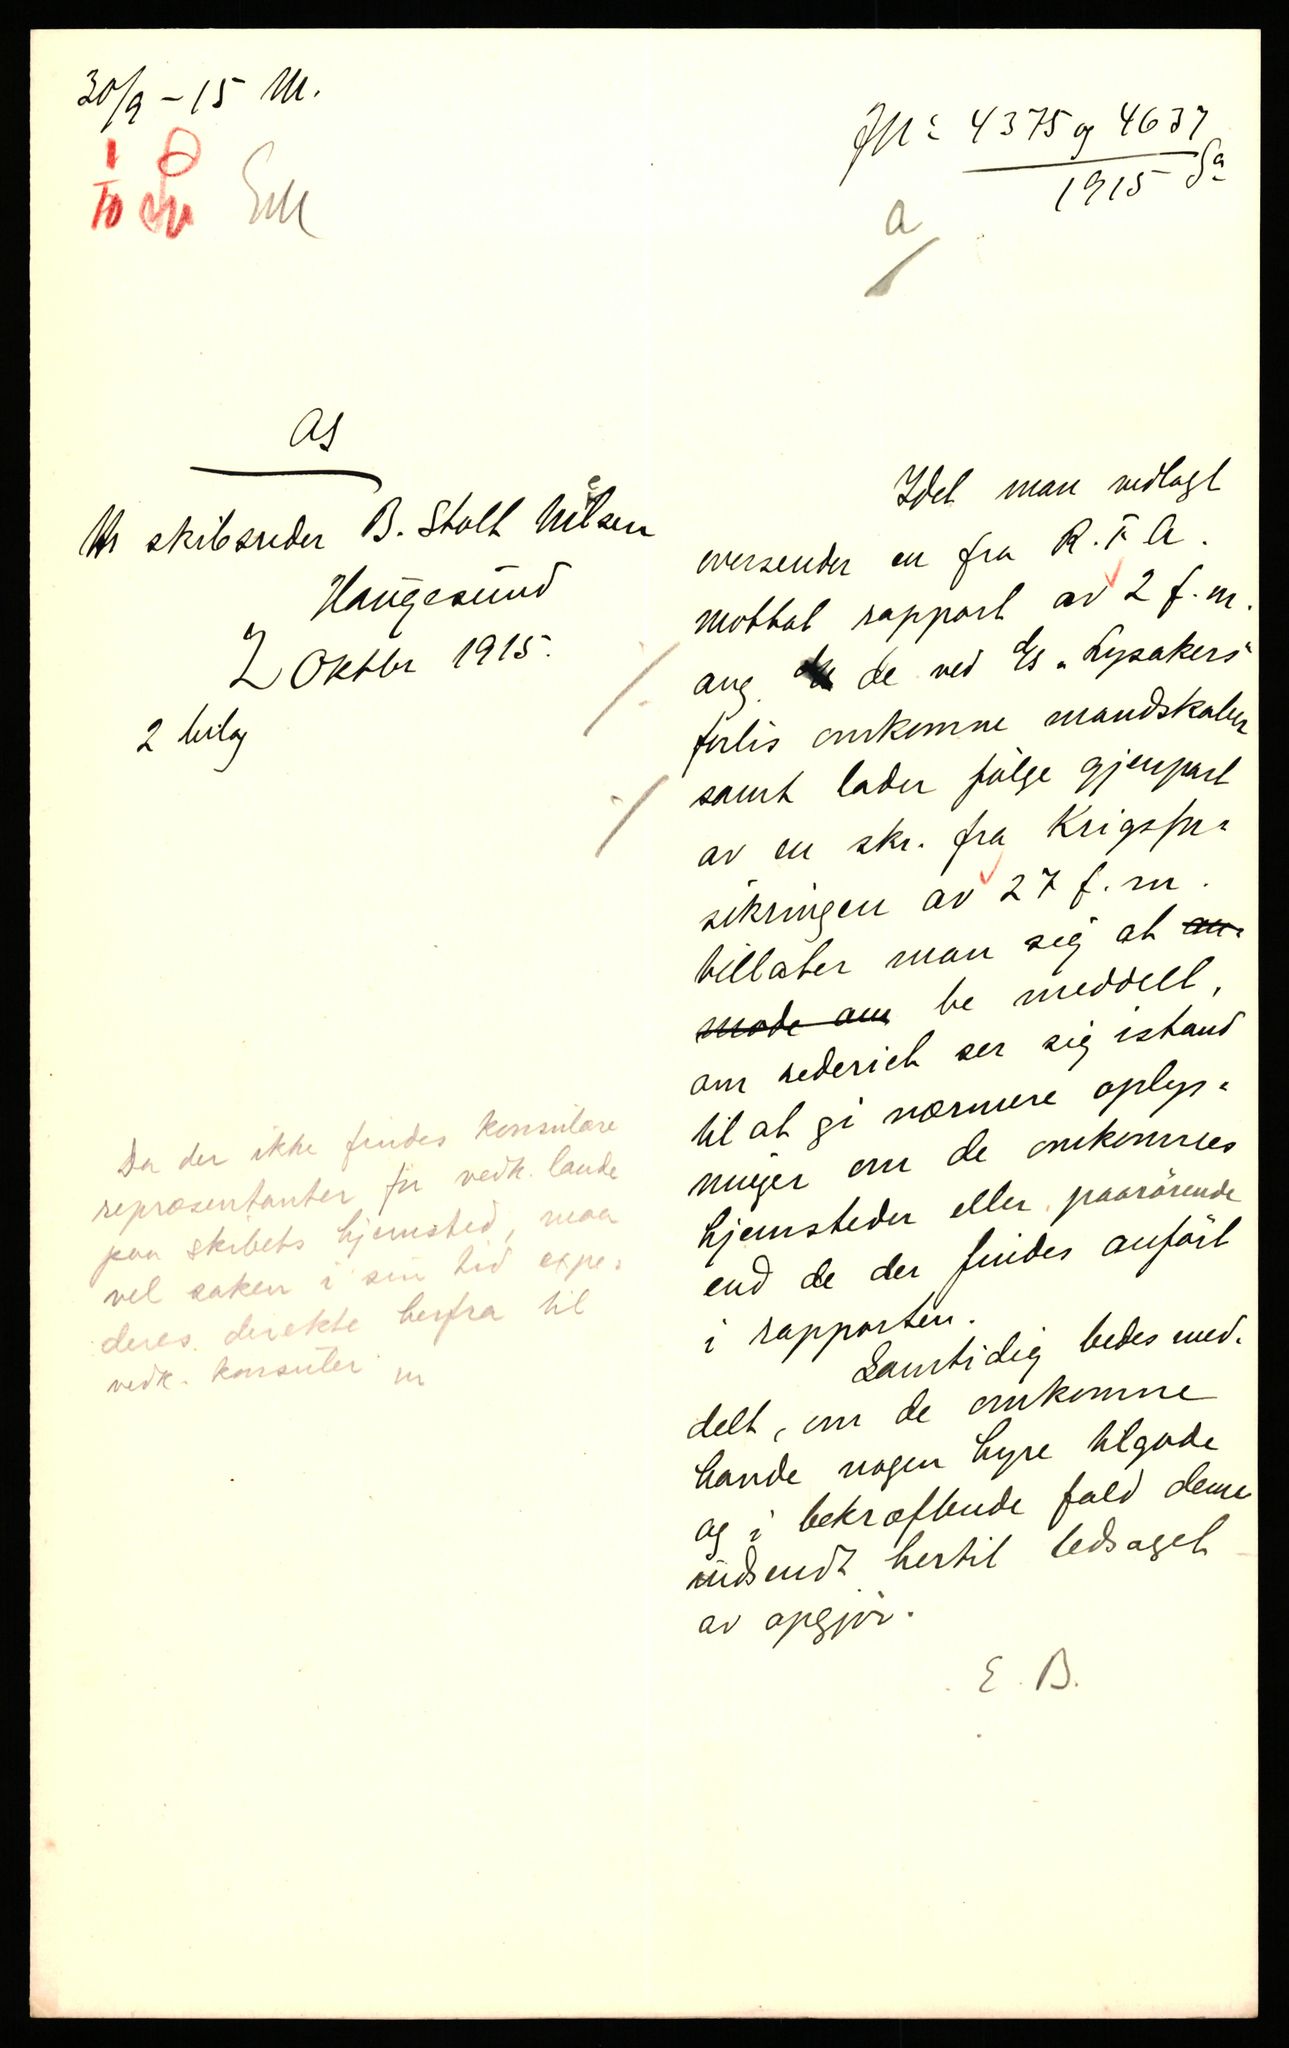 30/9 - 15 M.
1 O
10
JN: 4375 og 4637
1915
a
AS
Hr skibsreder B. Stolt Nielsen
Haugesund
2 Oktbr 1915.
2 bilag
Da der ikke findes konsulære
repræsentanter for vedk. lande
paa skibets hjemsted, maa
vel saken i sin tid expe-
deres direkte herfra til
vedk. konsuler. M
Idet man vedlagt
oversender en fra R. F. A.
mottat rapport av 2 f. m.
ang. de ved D/S "Lysakers"
forlis omkomne mandskaber
samt lader følge gjenpart
av en skr. fra Krigsfor-
sikringen av 27 f. m.
tillater man sig at an-
mode om be meddelt,
om rederiet ser sig istand
til at gi nærmere oplys-
ninger om de omkomnes
hjemsteder eller paarørende
end de der findes anført
i rapporten.
Samtidig bedes med-
delt, om de omkomne
havde nogen hyre tilgode
og i bekræftende fald denne
indsendt hertil ledsaget
av opgjør.
E. B.